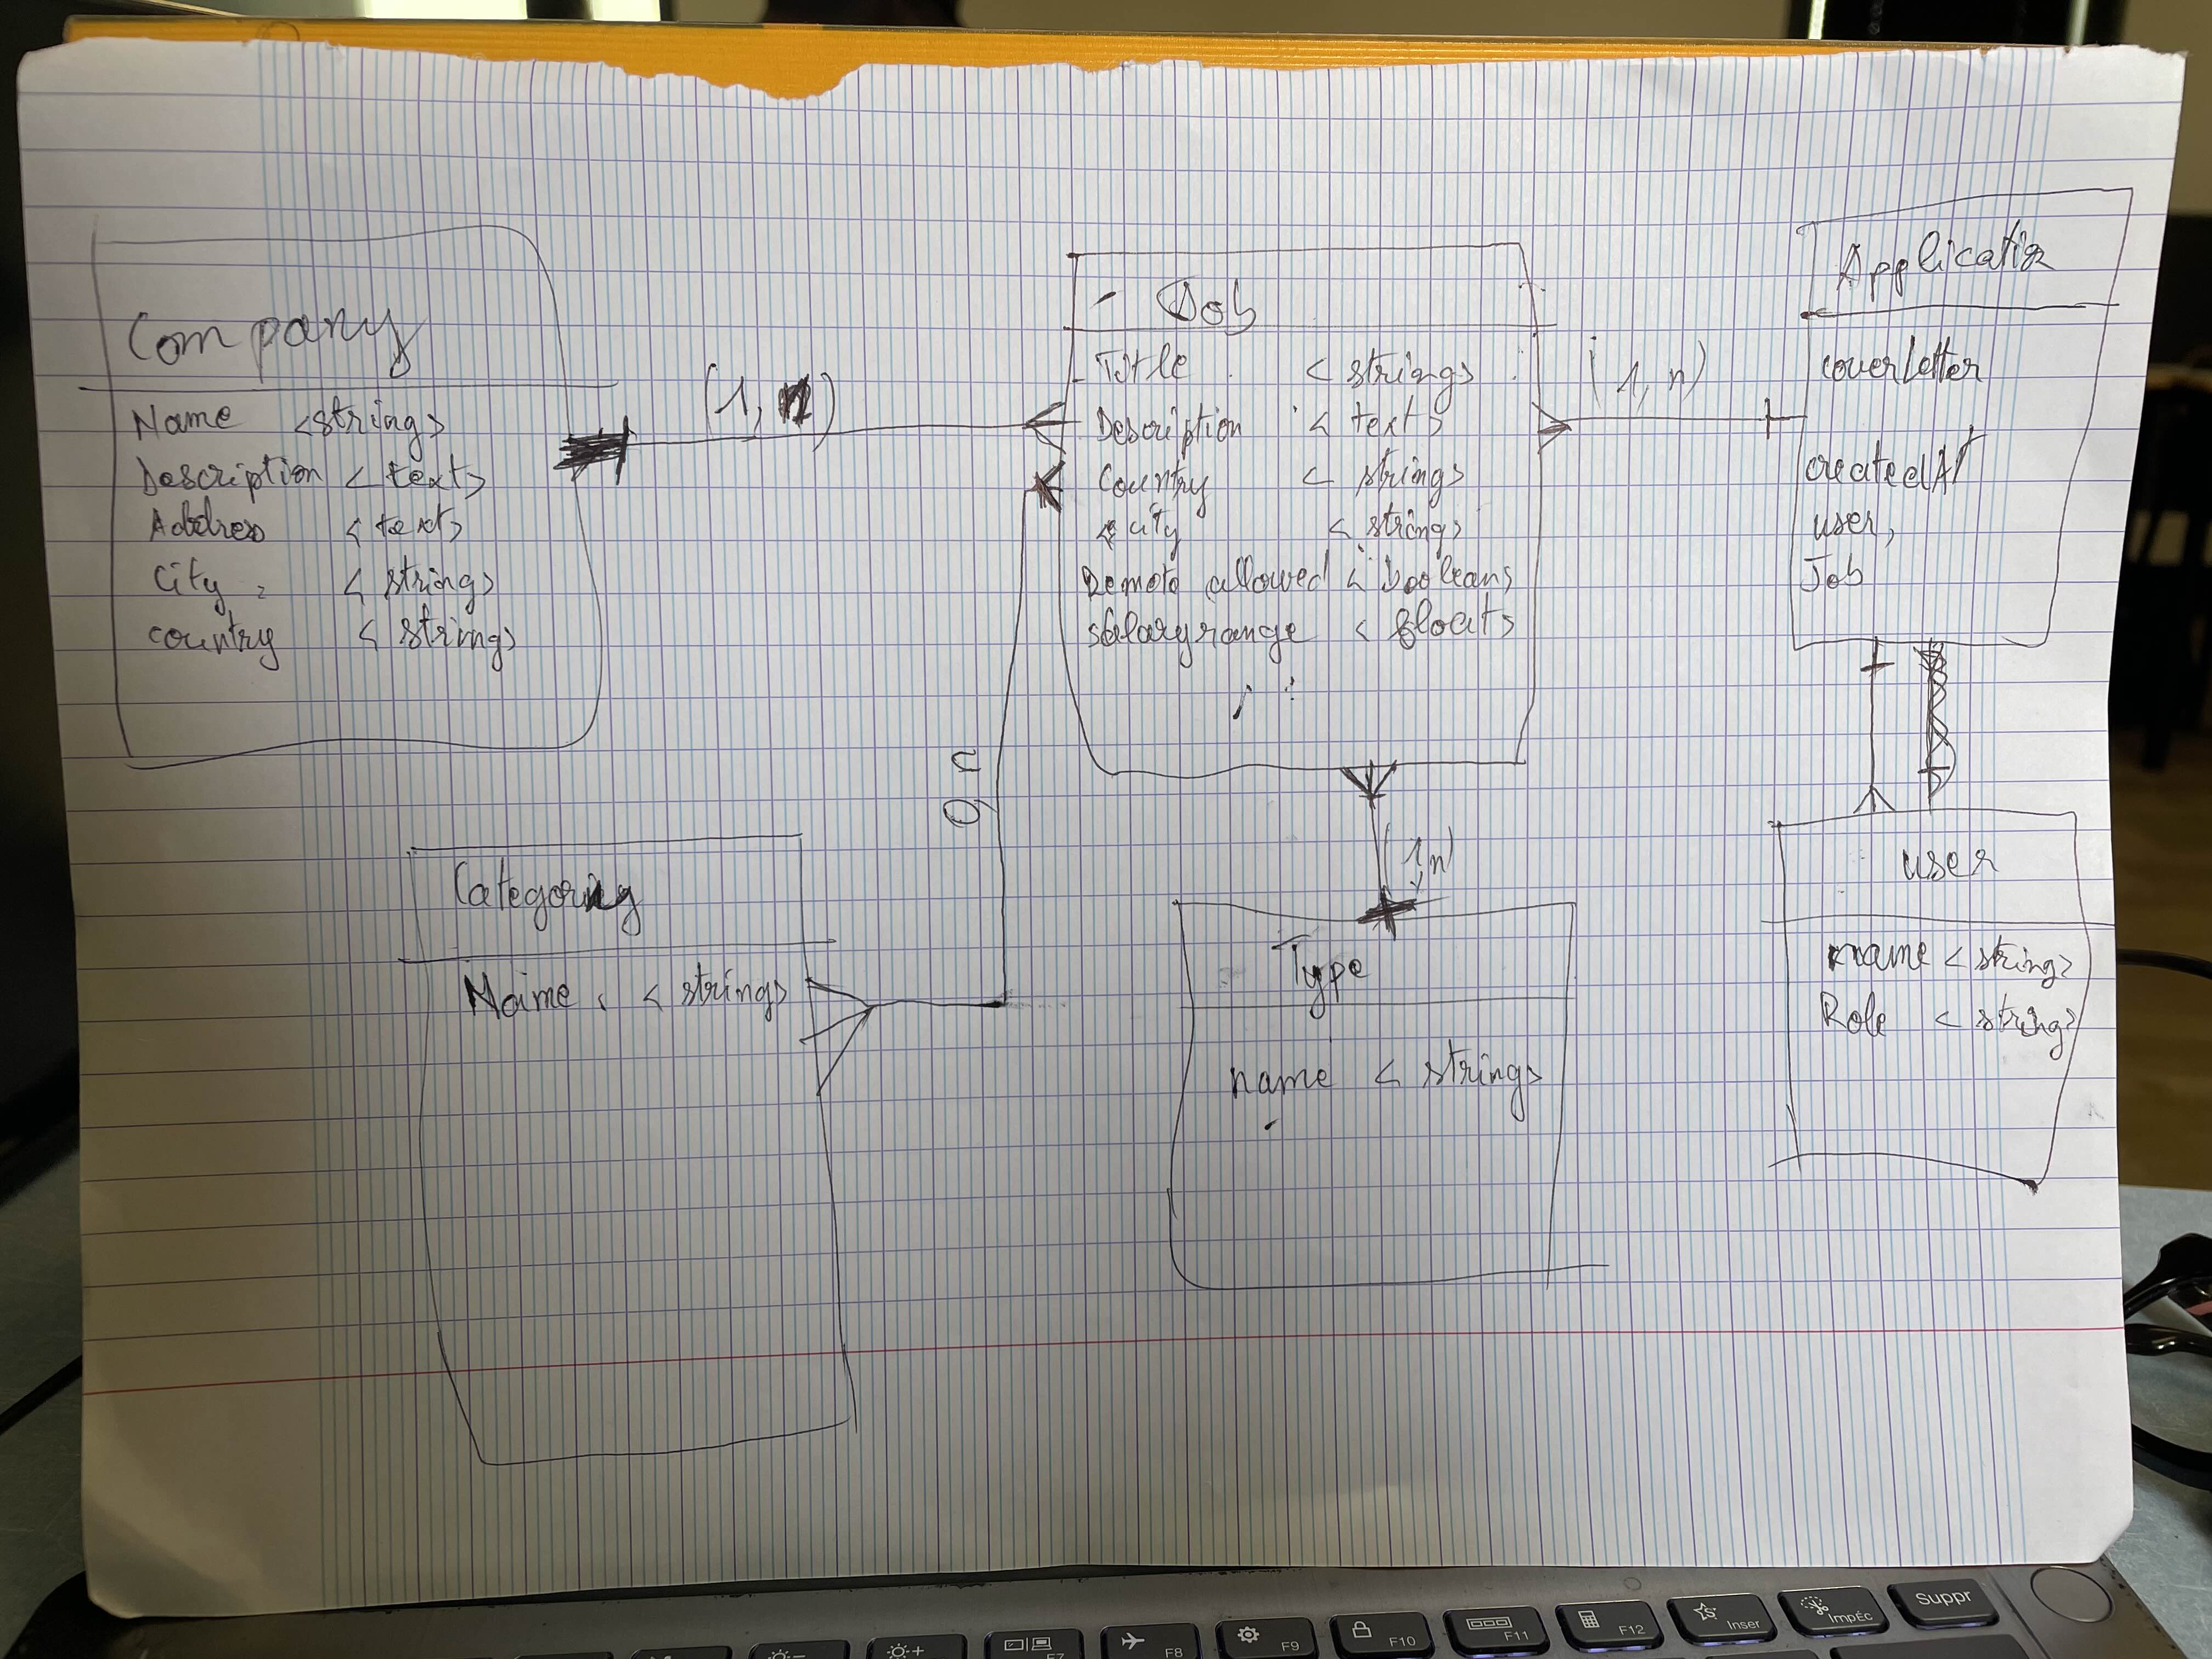 Company
Name <string>
Description <text>
Address <text>
City <string>
country <string>
(1, n)
Job
Title <string>
Description <text>
Country <string>
city <string>
Remote allowed <boolean>
salary range <float>
(1, n)
Application
coverletter
createdAt
user,
Job
0,n
Category
Name <string>
1,n
Type
name <string>
user
name <string>
Role <string>
F7
F8
F9
F10
F11
F12
Inser
ImpÉc
Suppr